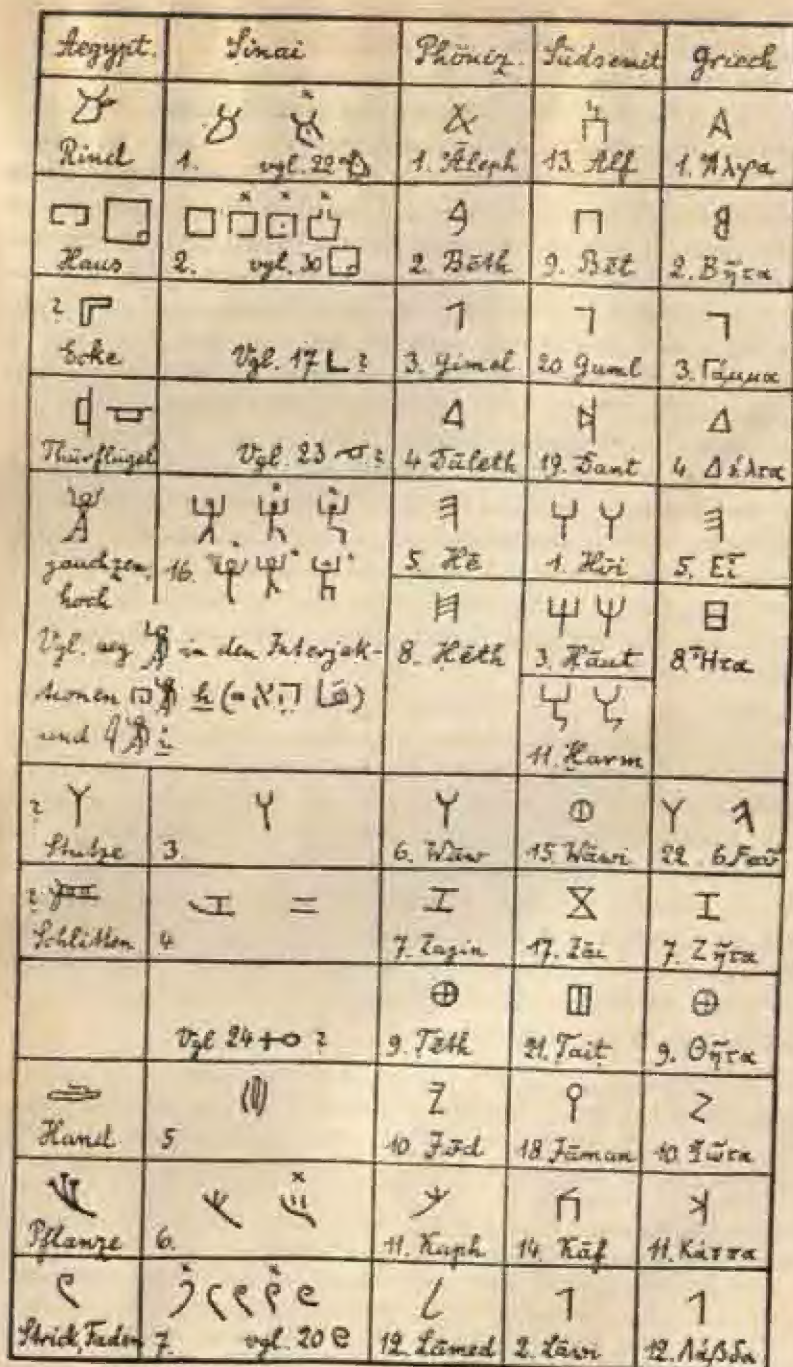 Aegypt. Sinai Phöniz. Südsemit Griech
Rind 1. vgl. 22 1. Āleph 13. Alf 1. Ἄλφα
Haus 2. vgl. 30 2. Bēth 9. Bēt 2. Βῆτα
? Ecke Vgl. 17 ? 3. Gimel 20 Guml 3. Γάμμα
Thürflügel Vgl. 23 ? 4 Dāleth 19. Dant 4. Δέλτα
jauchzen, 16. 5. Hē 1. Hōi 5. Εἶ
hoch
Vgl. aeg in den Interjek- 8. Ḥēth 3. Ḥāut 8. Ἦτα
tionen h (= הֵא)
und i
11. Ḫarm
? Stütze 3. 6. Wāw 15. Wāwi 22. 6. Ϝαῦ
? Schlitten 4 7. Zagin 17. Zāi 7. Ζῆτα
Vgl 24 ? 9. Ṭēth 21. Ṭait 9. Θῆτα
Hand 5 10 Jōd 18. Jāman 10. Ἰῶτα
Pflanze 6. 11. Kaph 14. Kāf 11. Κάππα
Strick, Faden 7. vgl. 20 12. Lāmed 2. Lāwi 12. Λάβδα